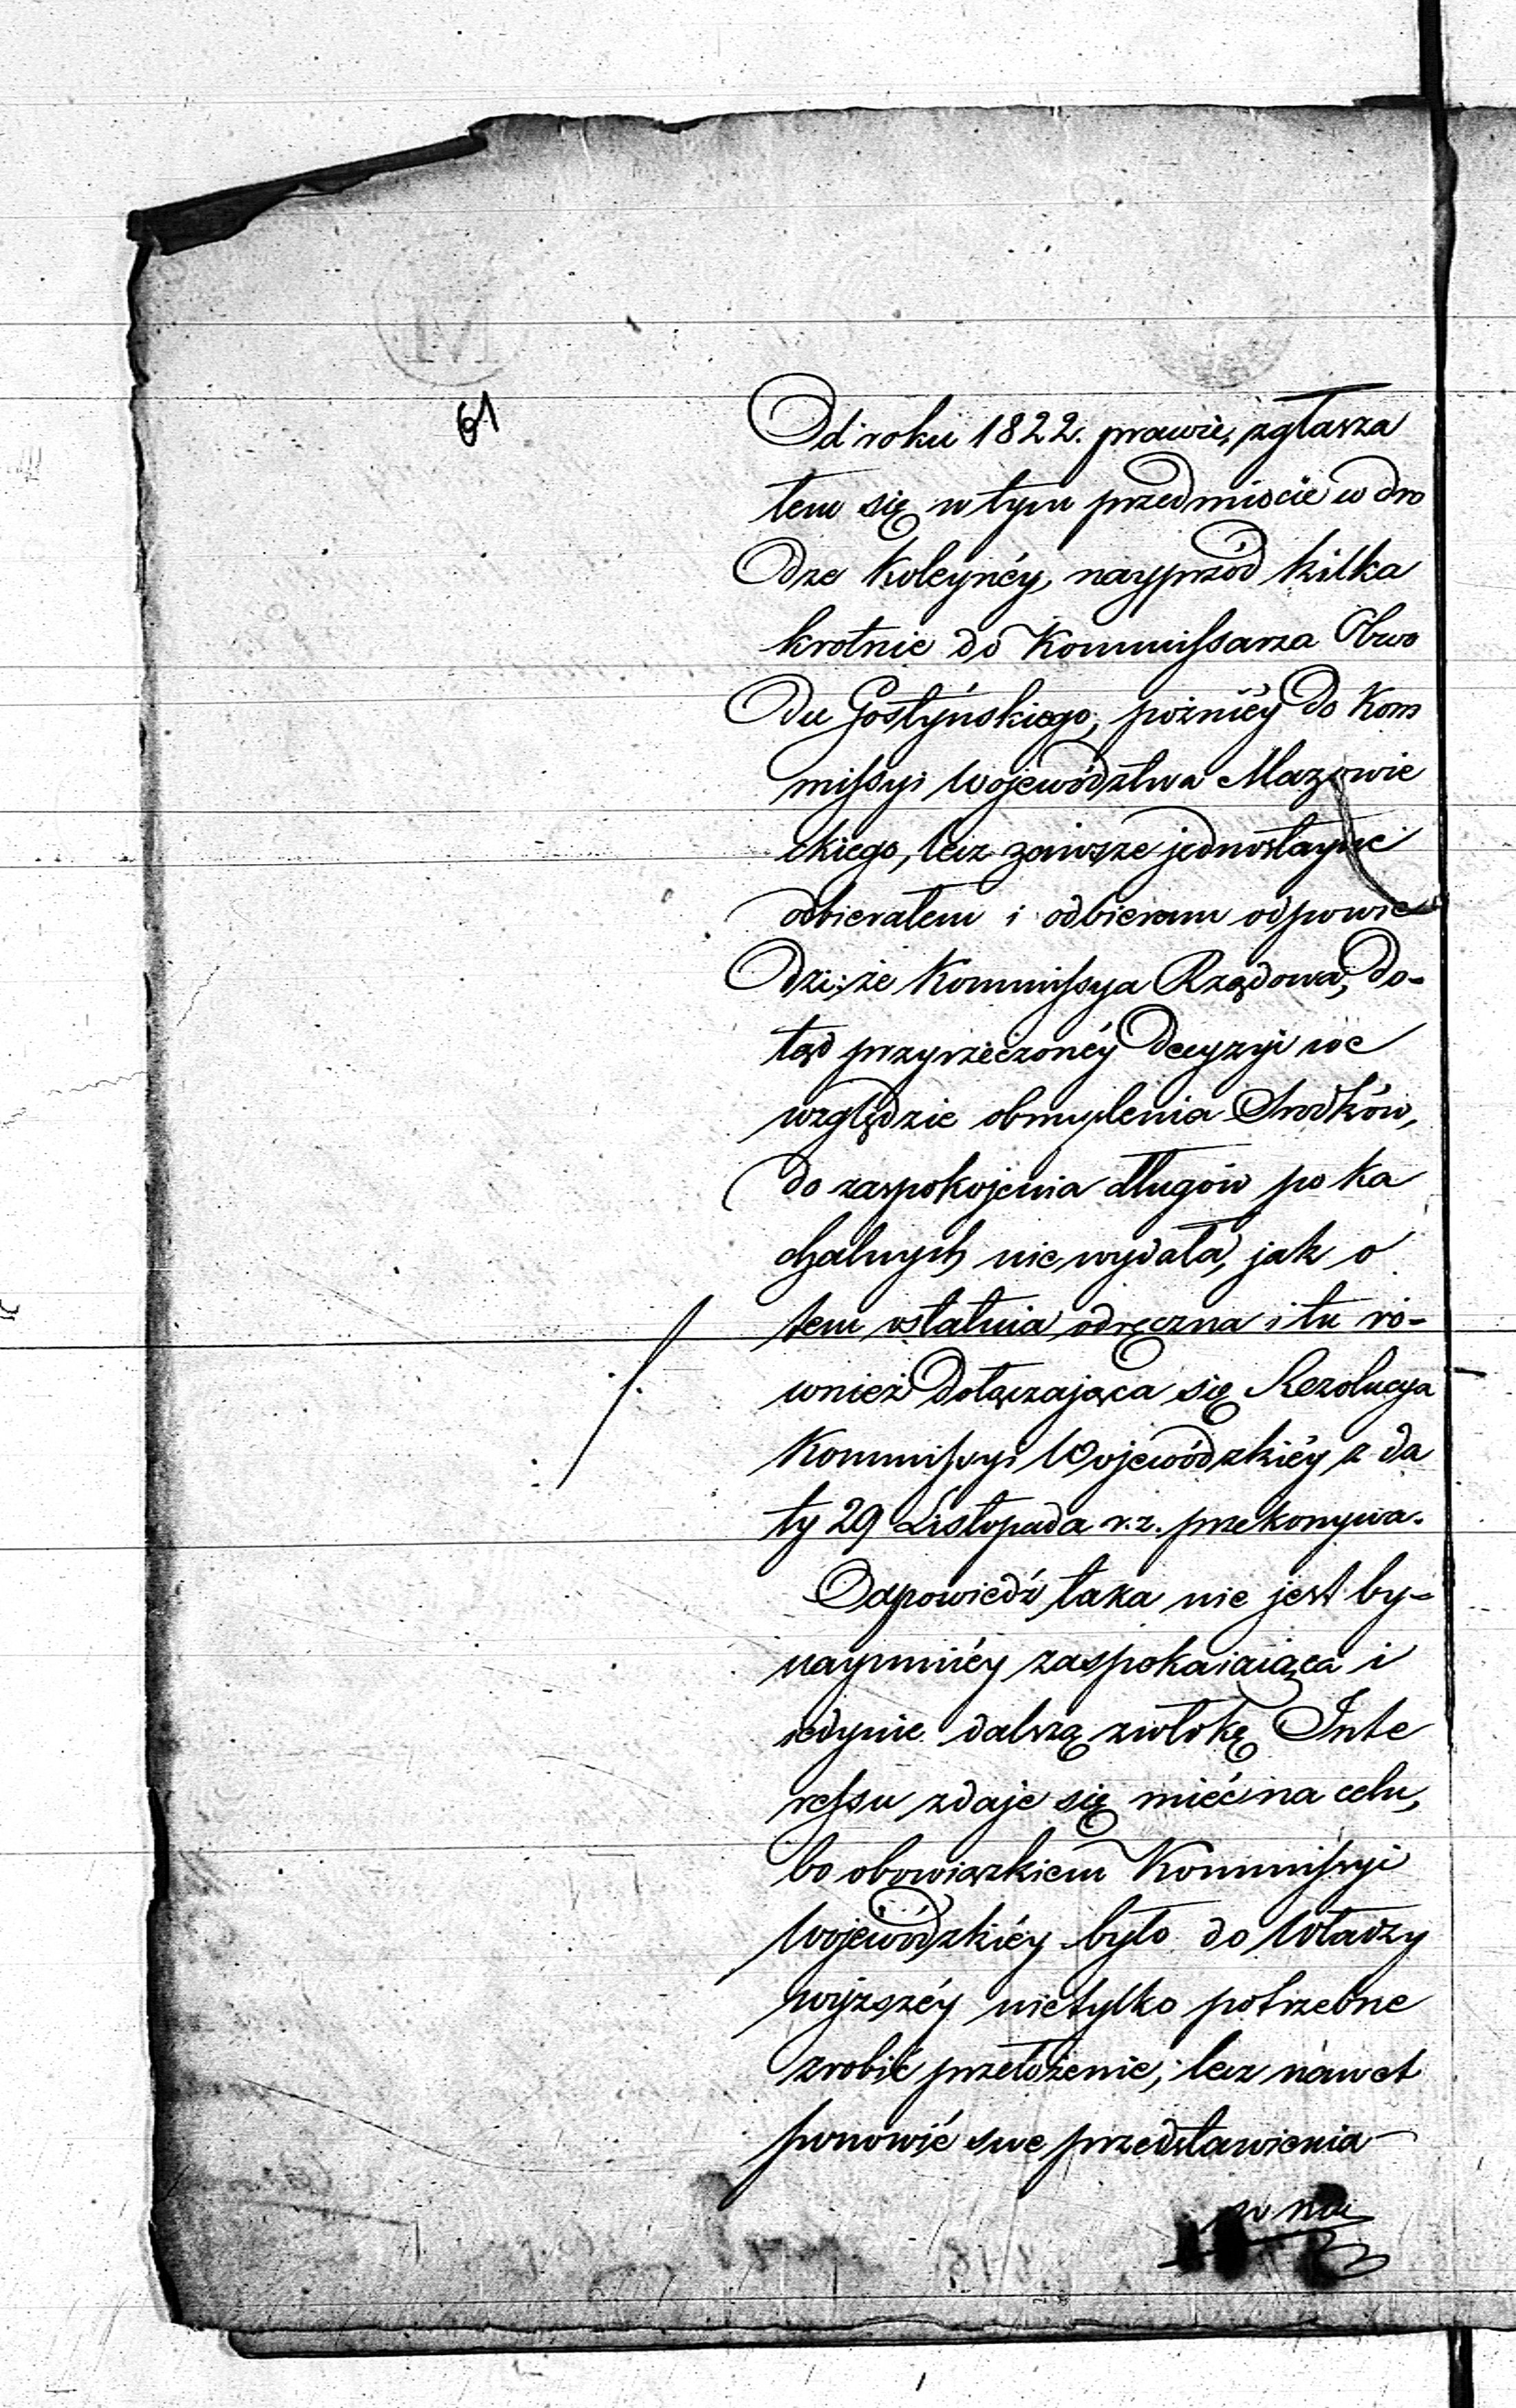 61
Od roku 1822. prawie, zgłasza
łem się w tym przedmiocie w dro
dze koleynéy, nayprzód kilka
krotnie do Kommissarza Obwo
du Gostyńskiego, pożniéy do Kom
missyi Województwa Mazowie
ckiego, lecz zawsze jednostayne
odbierałem i odbieram odpowie
dzi, że Kommissya Rządowa, do-
tąd przyrzeczonéy decyzyi we
względzie obmyślenia Srodków,
do zaspokojenia długów po ka
chalnych nie wydała, jak o
tem ostatnia odręczna i tu ró-
wnież dołączająca się Rezolucya
Kommissyi Wojewódzkiéy z da
ty 29 Listopada r. z. przekonywa.
Odpowiedź taka nie jest by-
naymniéy zaspokaiaiąca i
iedynie dalszą zwłokę Inte
ressu zdaje się mieć na celu,
bo obowiązkiem Kommissyi
Wojewódzkiéy było do Władzy
wyższéy nietylko potrzebne
zrobić przełożenie, lecz nawet
ponowić swe przedstawienia